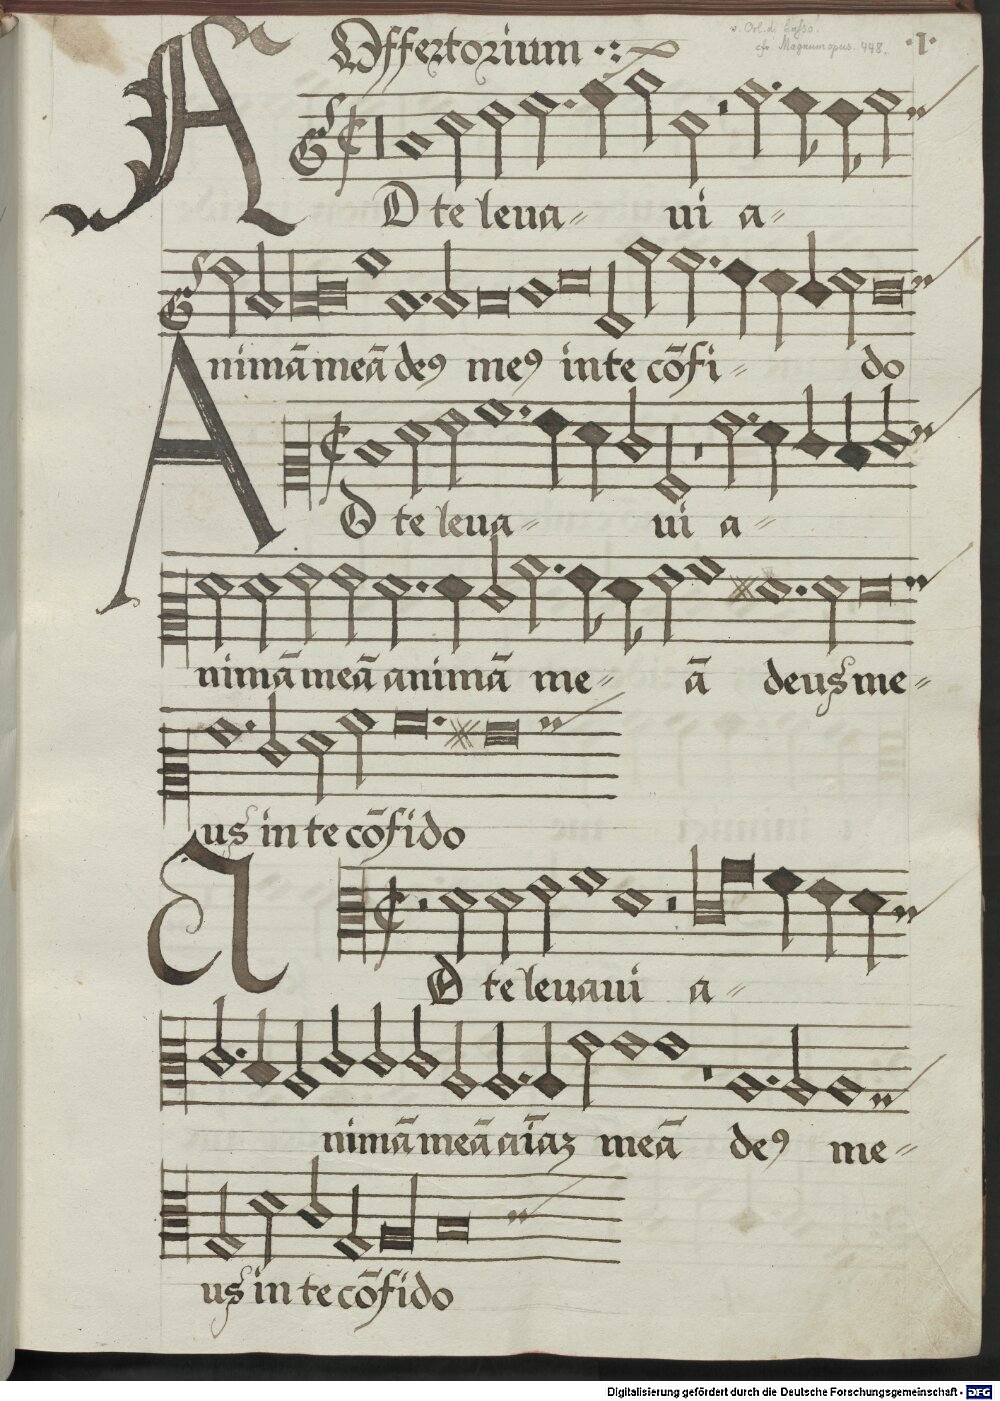 Offertorium
v. Orl. di Lasso.
cfr. Magnum opus. 448.
·1·
AD te leua= ui a=
nimā meā de9 me9 in te cōfi= do
AD te leua= ui a=
nimā meā animā me= ā deus me=
us in te cōfido
AD te leuaui a=
nimā meā aīaz meā de9 me=
us in te cōfido
Digitalisierung gefördert durch die Deutsche Forschungsgemeinschaft - DFG